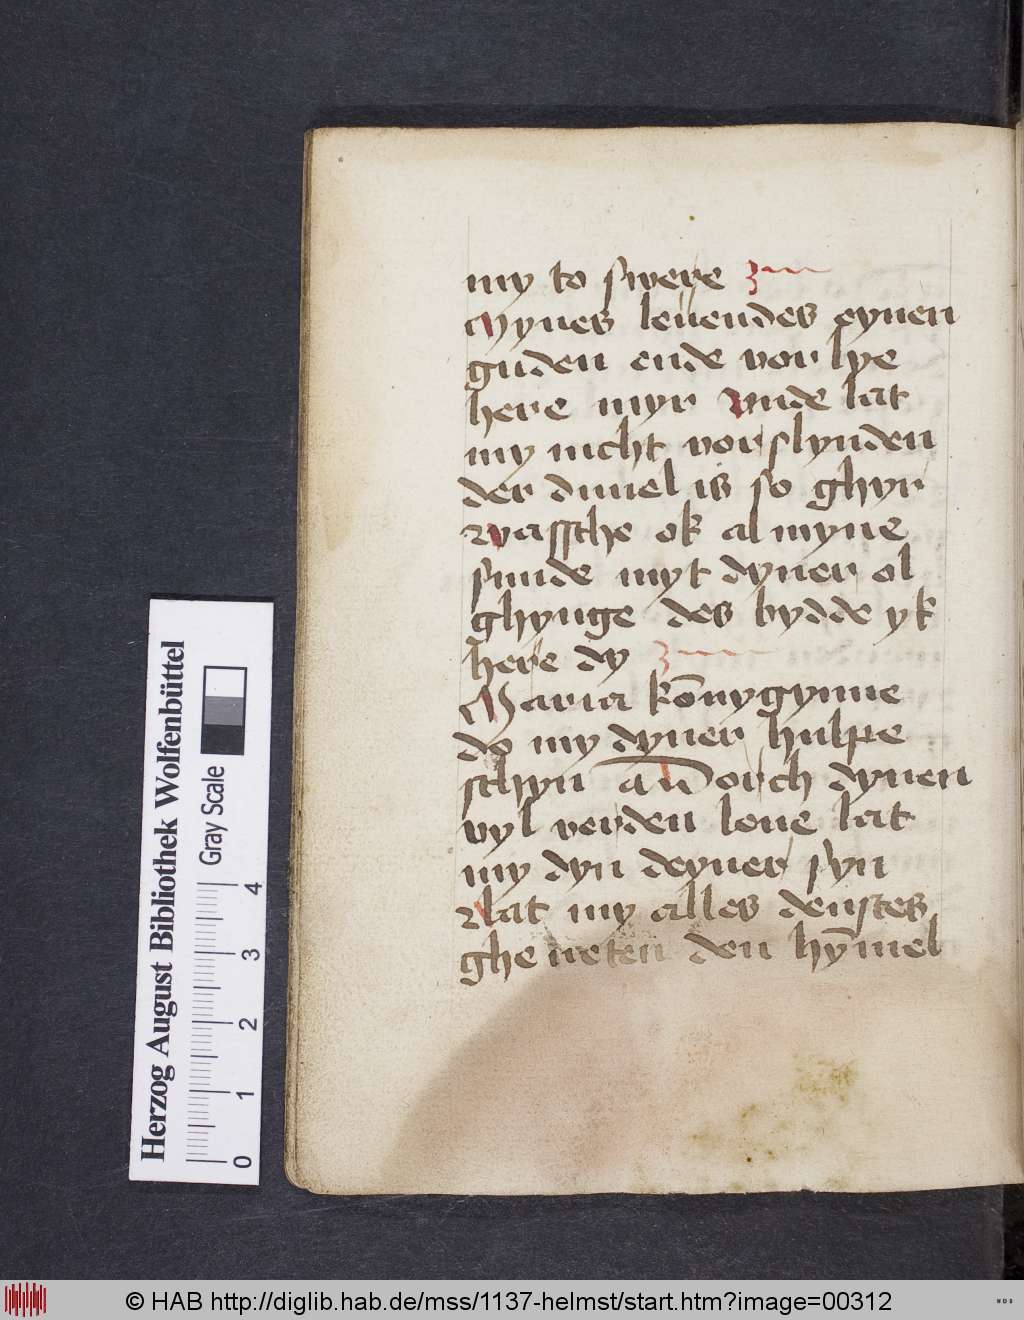 my to swere
Mynes leuendes eynen
guden ende vor lye
here myr vnde lat
my nicht vorslynden
der duuel is so ghyr
wassche ok al myne
sunde myt dyner ol
ghynge des bydde yk
here dy
Maria ko̅nygynne
do my dyner hulpe
schyn dorch dynen
vyl verden loue lat
my dyn deyner syn
lat my alles denstes
ghe neten den hy̅mel
Herzog August Bibliothek Wolfenbüttel
Gray Scale
0 1 2 3 4
© HAB http://diglib.hab.de/mss/1137-helmst/start.htm?image=00312